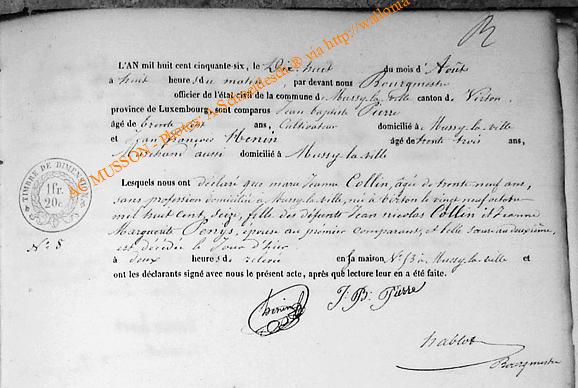 R
L'AN mil huit cent cinquante-six, le Dix huit du mois d'Août
à huit heures du matin, par devant nous Bourgmestre
officier de l'état civil de la commune de Mussy-la-ville canton de Virton,
province de Luxembourg, sont comparus Jean Baptiste Pierre
âgé de trente ans, Cultivateur domicilié à Mussy-la-ville
et Jean François Henin âgé de trente trois ans,
aussi domicilié à Mussy-la-ville
Lesquels nous ont déclaré que marie Jeanne Collin, âgée de trente neuf ans,
sans profession domiciliée à Mussy-la-ville, née à Virton le vingt neuf octobre
mil huit cent seize, fille des défunts Jean nicolas Collin et Jeanne
Marguerite épouse au premier comparant, et belle soeur au deuxième,
est décédée le Jour d'hier
à deux heures de relevé en sa maison N° 53 à Mussy-la-ville et
ont les déclarants signé avec nous le présent acte, après que lecture leur en a été faite.
TIMBRE DE DIMENSION
1fr.
20c.
N° 8
henin
J. B. Pierre
hablot
Bourgmestre
MUSSON - Photos: A. Schmidesch ® via http://wallonia